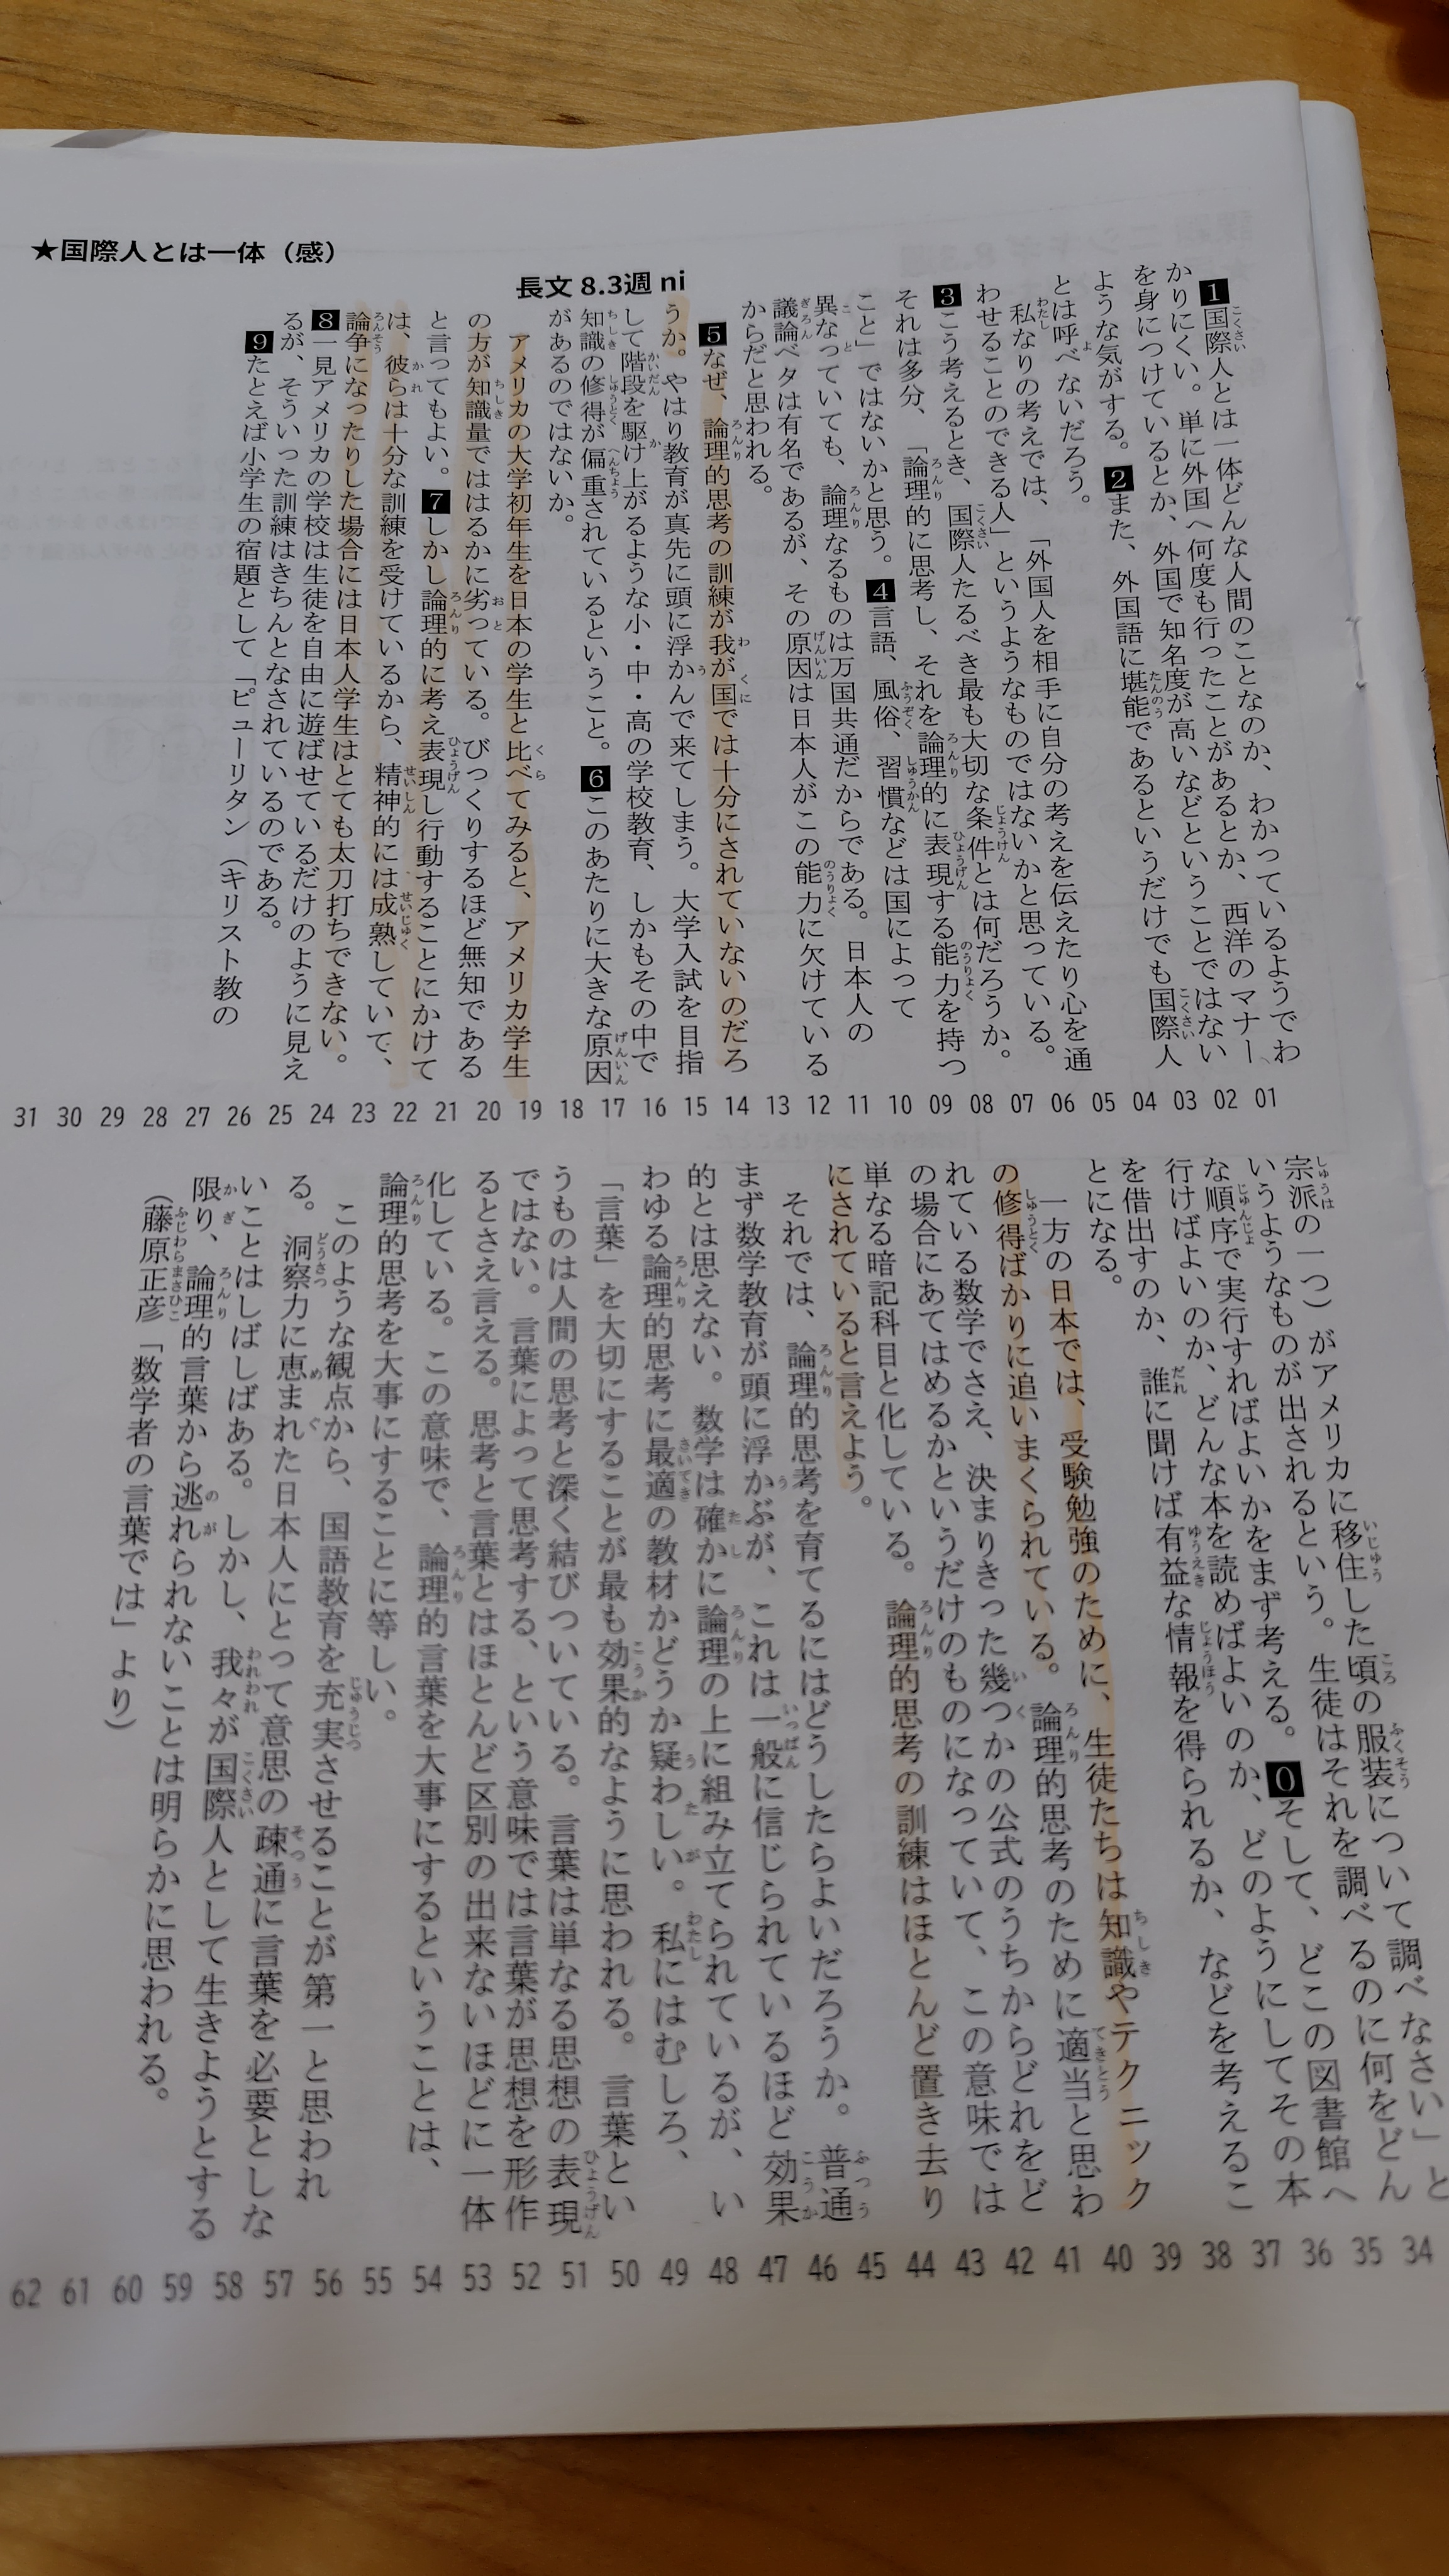 ★国際人とは一体（感）
長文 8.3週 ni
1国際人とは一体どんな人間のことなのか、わかっているようでわ
かりにくい。単に外国へ何度も行ったことがあるとか、西洋のマナー
を身につけているとか、外国で知名度が高いなどということではない
ような気がする。2また、外国語に堪能であるというだけでも国際人
とは呼べないだろう。
私なりの考えでは、「外国人を相手に自分の考えを伝えたり心を通
わせることのできる人」というようなものではないかと思っている。
3こう考えるとき、国際人たるべき最も大切な条件とは何だろうか。
それは多分、「論理的に思考し、それを論理的に表現する能力を持つ
こと」ではないかと思う。4言語、風俗、習慣などは国によって
異なっていても、論理なるものは万国共通だからである。日本人の
議論ベタは有名であるが、その原因は日本人がこの能力に欠けている
からだと思われる。
5なぜ、論理的思考の訓練が我が国では十分にされていないのだろ
うか。やはり教育が真先に頭に浮かんで来てしまう。大学入試を目指
して階段を駆け上がるような小・中・高の学校教育、しかもその中で
知識の修得が偏重されているということ。6このあたりに大きな原因
があるのではないか。
アメリカの大学初年生を日本の学生と比べてみると、アメリカ学生
の方が知識量でははるかに劣っている。びっくりするほど無知である
と言ってもよい。7しかし論理的に考え表現し行動することにかけて
は、彼らは十分な訓練を受けているから、精神的には成熟していて、
論争になったりした場合には日本人学生はとても太刀打ちできない。
8一見アメリカの学校は生徒を自由に遊ばせているだけのように見え
るが、そういった訓練はきちんとなされているのである。
9たとえば小学生の宿題として「ピューリタン（キリスト教の
01 02 03 04 05 06 07 08 09 10 11 12 13 14 15 16 17 18 19 20 21 22 23 24 25 26 27 28 29 30 31
宗派の一つ）がアメリカに移住した頃の服装について調べなさい」と
いうようなものが出されるという。生徒はそれを調べるのに何をどん
な順序で実行すればよいかをまず考える。0そして、どこの図書館へ
行けばよいのか、どんな本を読めばよいのか、どのようにしてその本
を借出すのか、誰に聞けば有益な情報を得られるか、などを考えるこ
とになる。
一方の日本では、受験勉強のために、生徒たちは知識やテクニック
の修得ばかりに追いまくられている。論理的思考のために適当と思わ
れている数学でさえ、決まりきった幾つかの公式のうちからどれをど
の場合にあてはめるかというだけのものになっていて、この意味では
単なる暗記科目と化している。論理的思考の訓練はほとんど置き去り
にされていると言えよう。
それでは、論理的思考を育てるにはどうしたらよいだろうか。普通
まず数学教育が頭に浮かぶが、これは一般に信じられているほど効果
的とは思えない。数学は確かに論理の上に組み立てられているが、い
わゆる論理的思考に最適の教材かどうか疑わしい。私にはむしろ、
「言葉」を大切にすることが最も効果的なように思われる。言葉とい
うものは人間の思考と深く結びついている。言葉は単なる思想の表現
ではない。言葉によって思考する、という意味では言葉が思想を形作
るとさえ言える。思考と言葉とはほとんど区別の出来ないほどに一体
化している。この意味で、論理的言葉を大事にするということは、
論理的思考を大事にすることに等しい。
このような観点から、国語教育を充実させることが第一と思われ
る。洞察力に恵まれた日本人にとって意思の疎通に言葉を必要としな
いことはしばしばある。しかし、我々が国際人として生きようとする
限り、論理的言葉から逃れられないことは明らかに思われる。
（藤原正彦「数学者の言葉では」より）
34 35 36 37 38 39 40 41 42 43 44 45 46 47 48 49 50 51 52 53 54 55 56 57 58 59 60 61 62